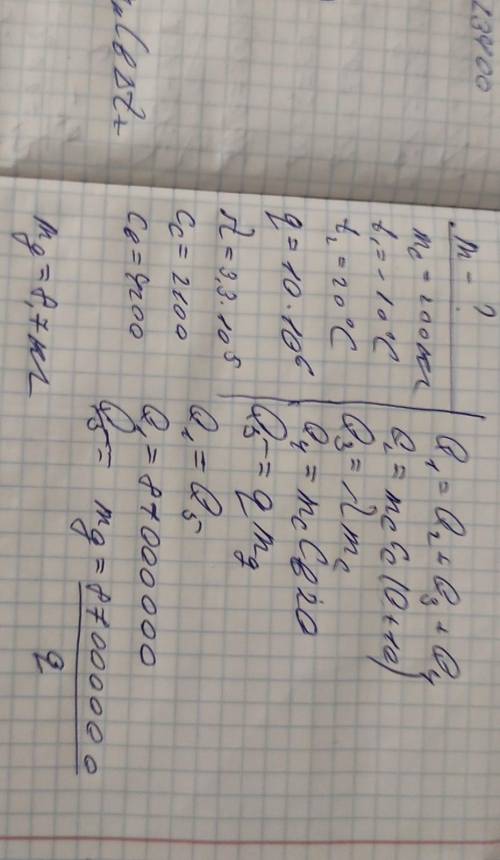 23400
m - ?
m_c = 200 кг
t₁ = -10°C
t₂ = 20°C
q = 10·10⁶
λ = 3,3·10⁵
C_c = 2100
C_в = 4200
m_g = 8,7 кг
Q₁ = Q₂ + Q₃ + Q₄
Q₂ = m_c C_c (0+10)
Q₃ = λ m_c
Q₄ = m_c C_в 20
Q₅ = q m_g
Q₁ = Q₅
Q₁ = 87000000
Q₅ = m_g = 87000000
q